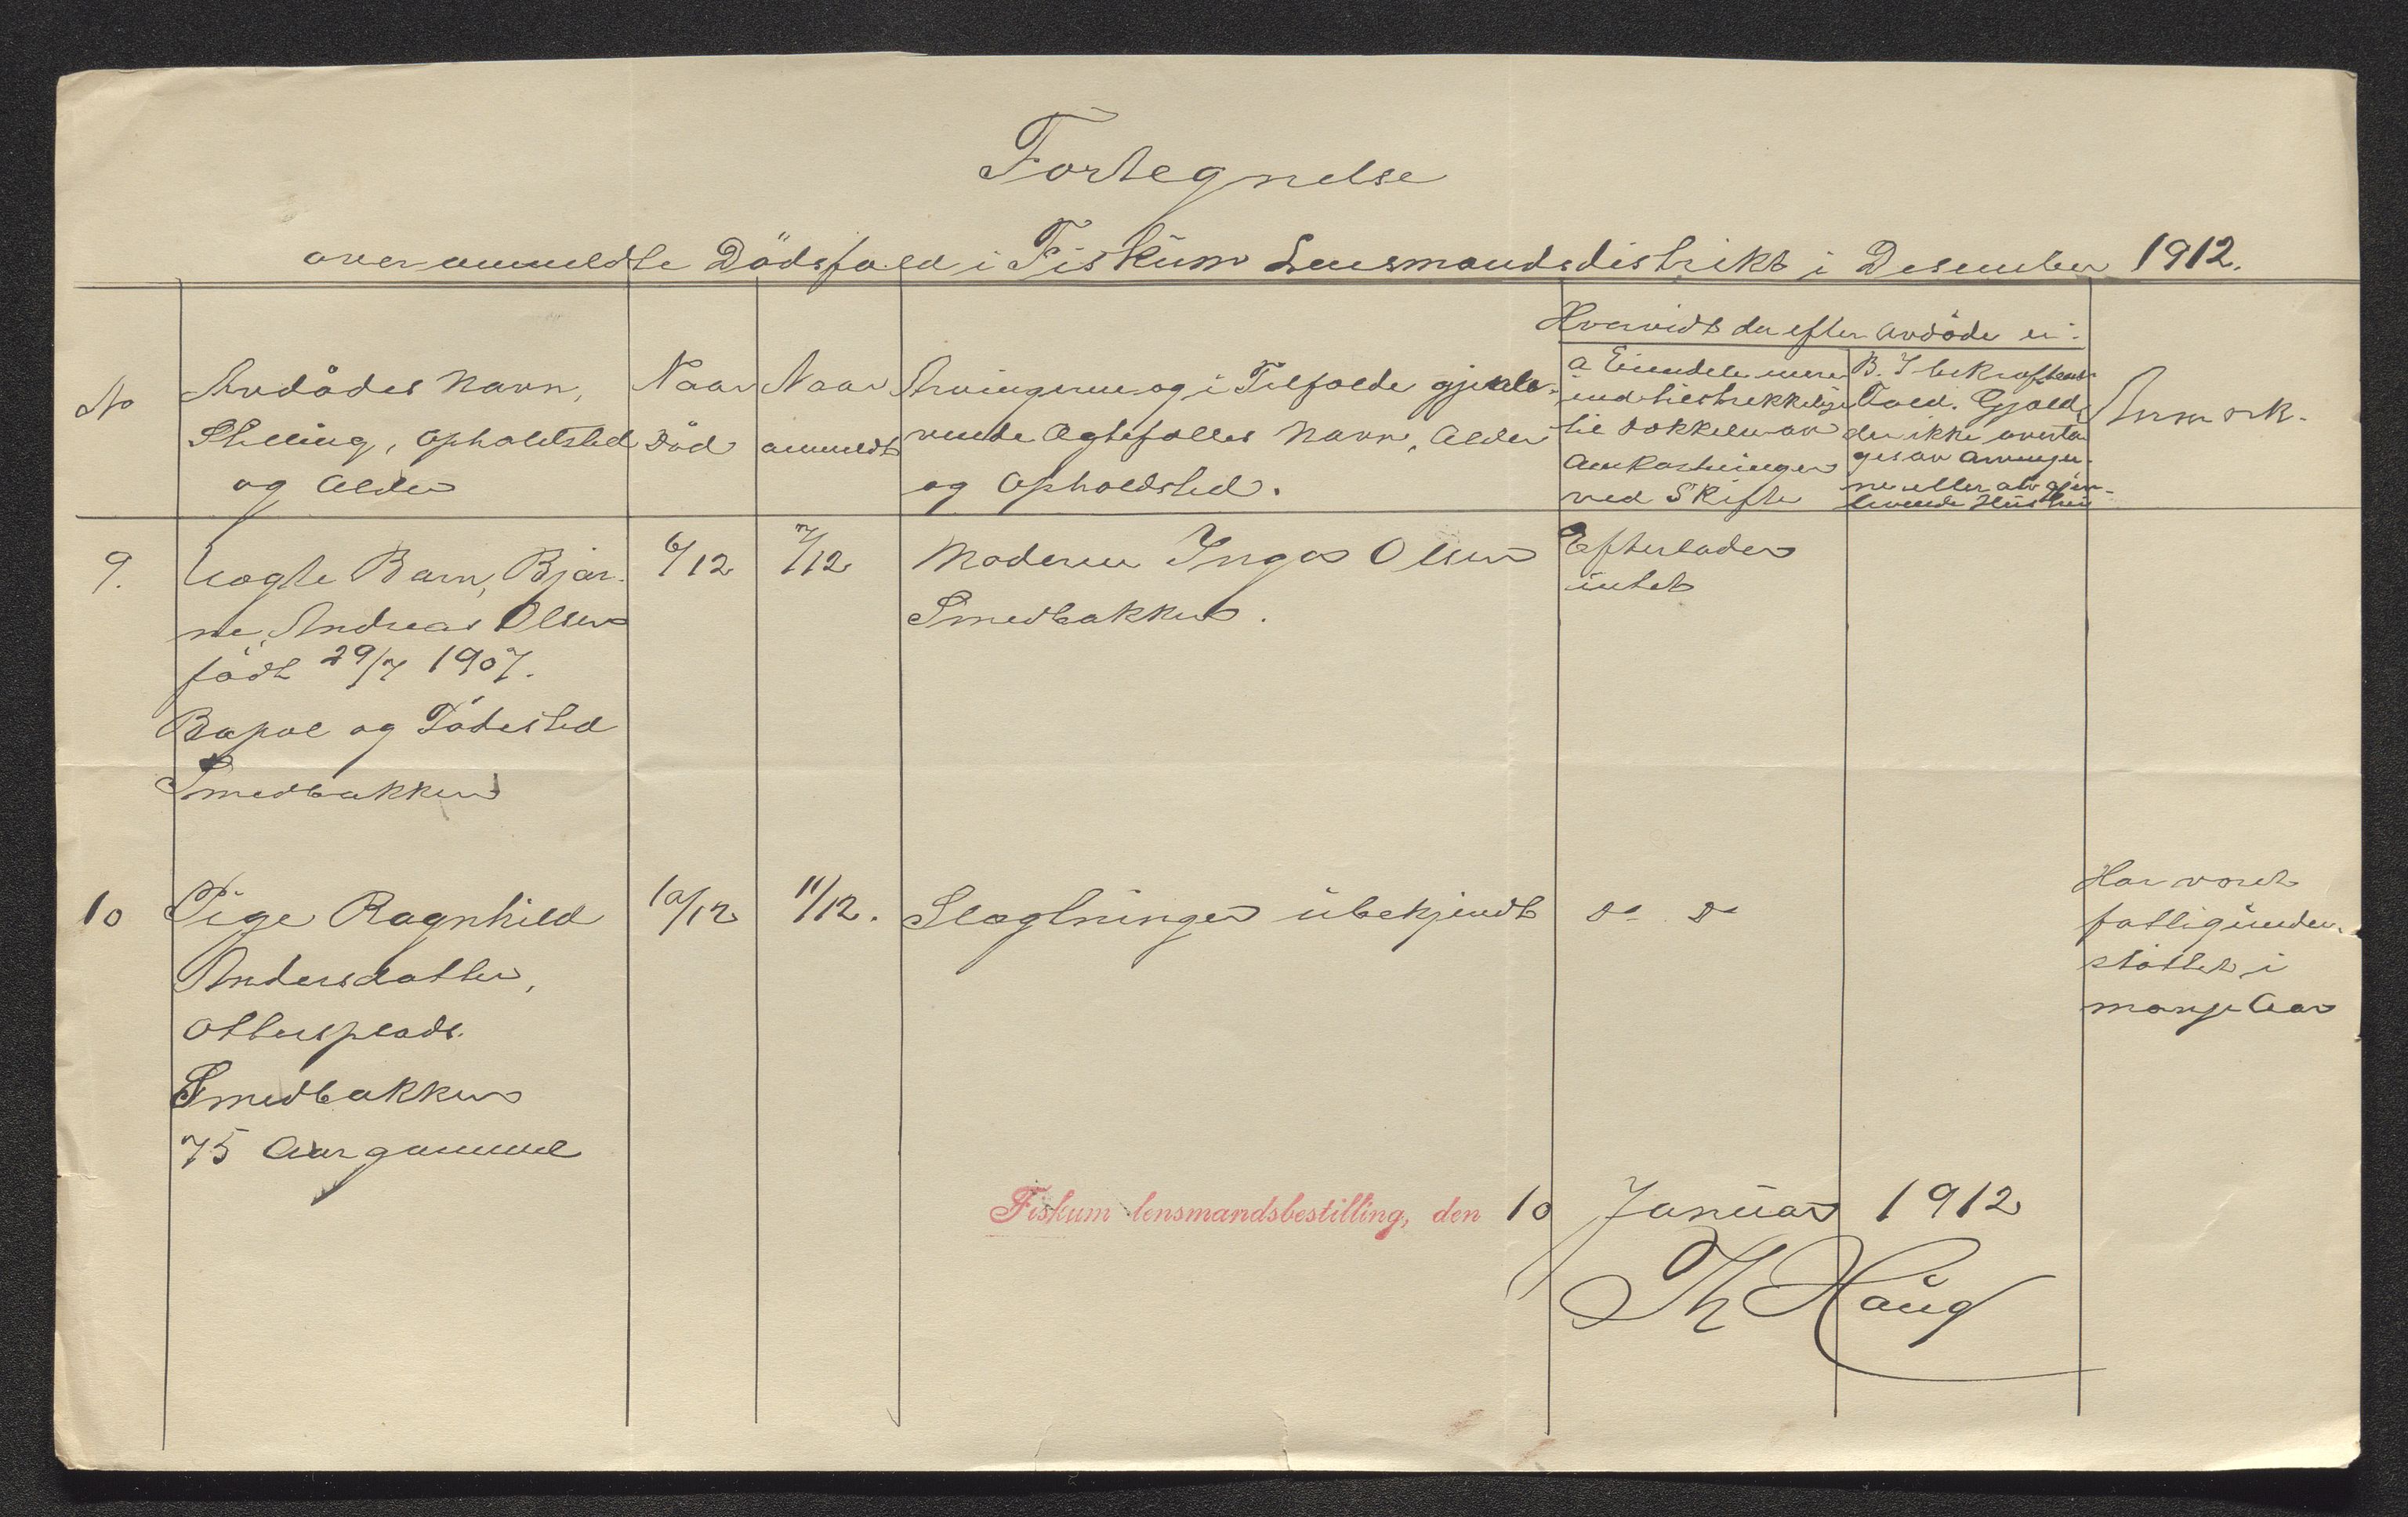 Fortegnelse
over anmeldte Dödsfald i Fiskum Lensmandsdistrikt i Desember 1912.
No
Avdødes Navn,
Stilling, Opholdsted
og Alder
Naar
Död
Naar
anmeldt
Arvingerne og i Tilfælde gjenle-
vende Ægtefælles Navn, Alder
og Opholdsted.
Hvorvidt der efter Avdøde er:
a Eiendele mere
end tilstrekkelige
til Dækkelse av
Omkostninger
ved Skifte
B. I bekræftende
Fald. Gjæld,
der ikke overta-
ges av Arvinger-
ne eller av gjen-
levende Hustru
Anmerk.
9.
Uægte Barn, Bjar-
ne, Andreas Olsen
född 29/7 1907.
Bopæl og Födested
Smedbakken
6/12
7/12
Moderen Inga Olsen
Smedbakken.
Efterlader
intet
10
Pige Ragnhild
Andersdatter,
Ottersplads.
Smedbakken
75 Aar gammel
10/12
11/12.
Slægtninger ubekjendt
Do Do
Har været
fattigunder-
støttet i
mange Aar
Fiskum lensmandsbestilling, den 10 Januar 1912
Th Haug